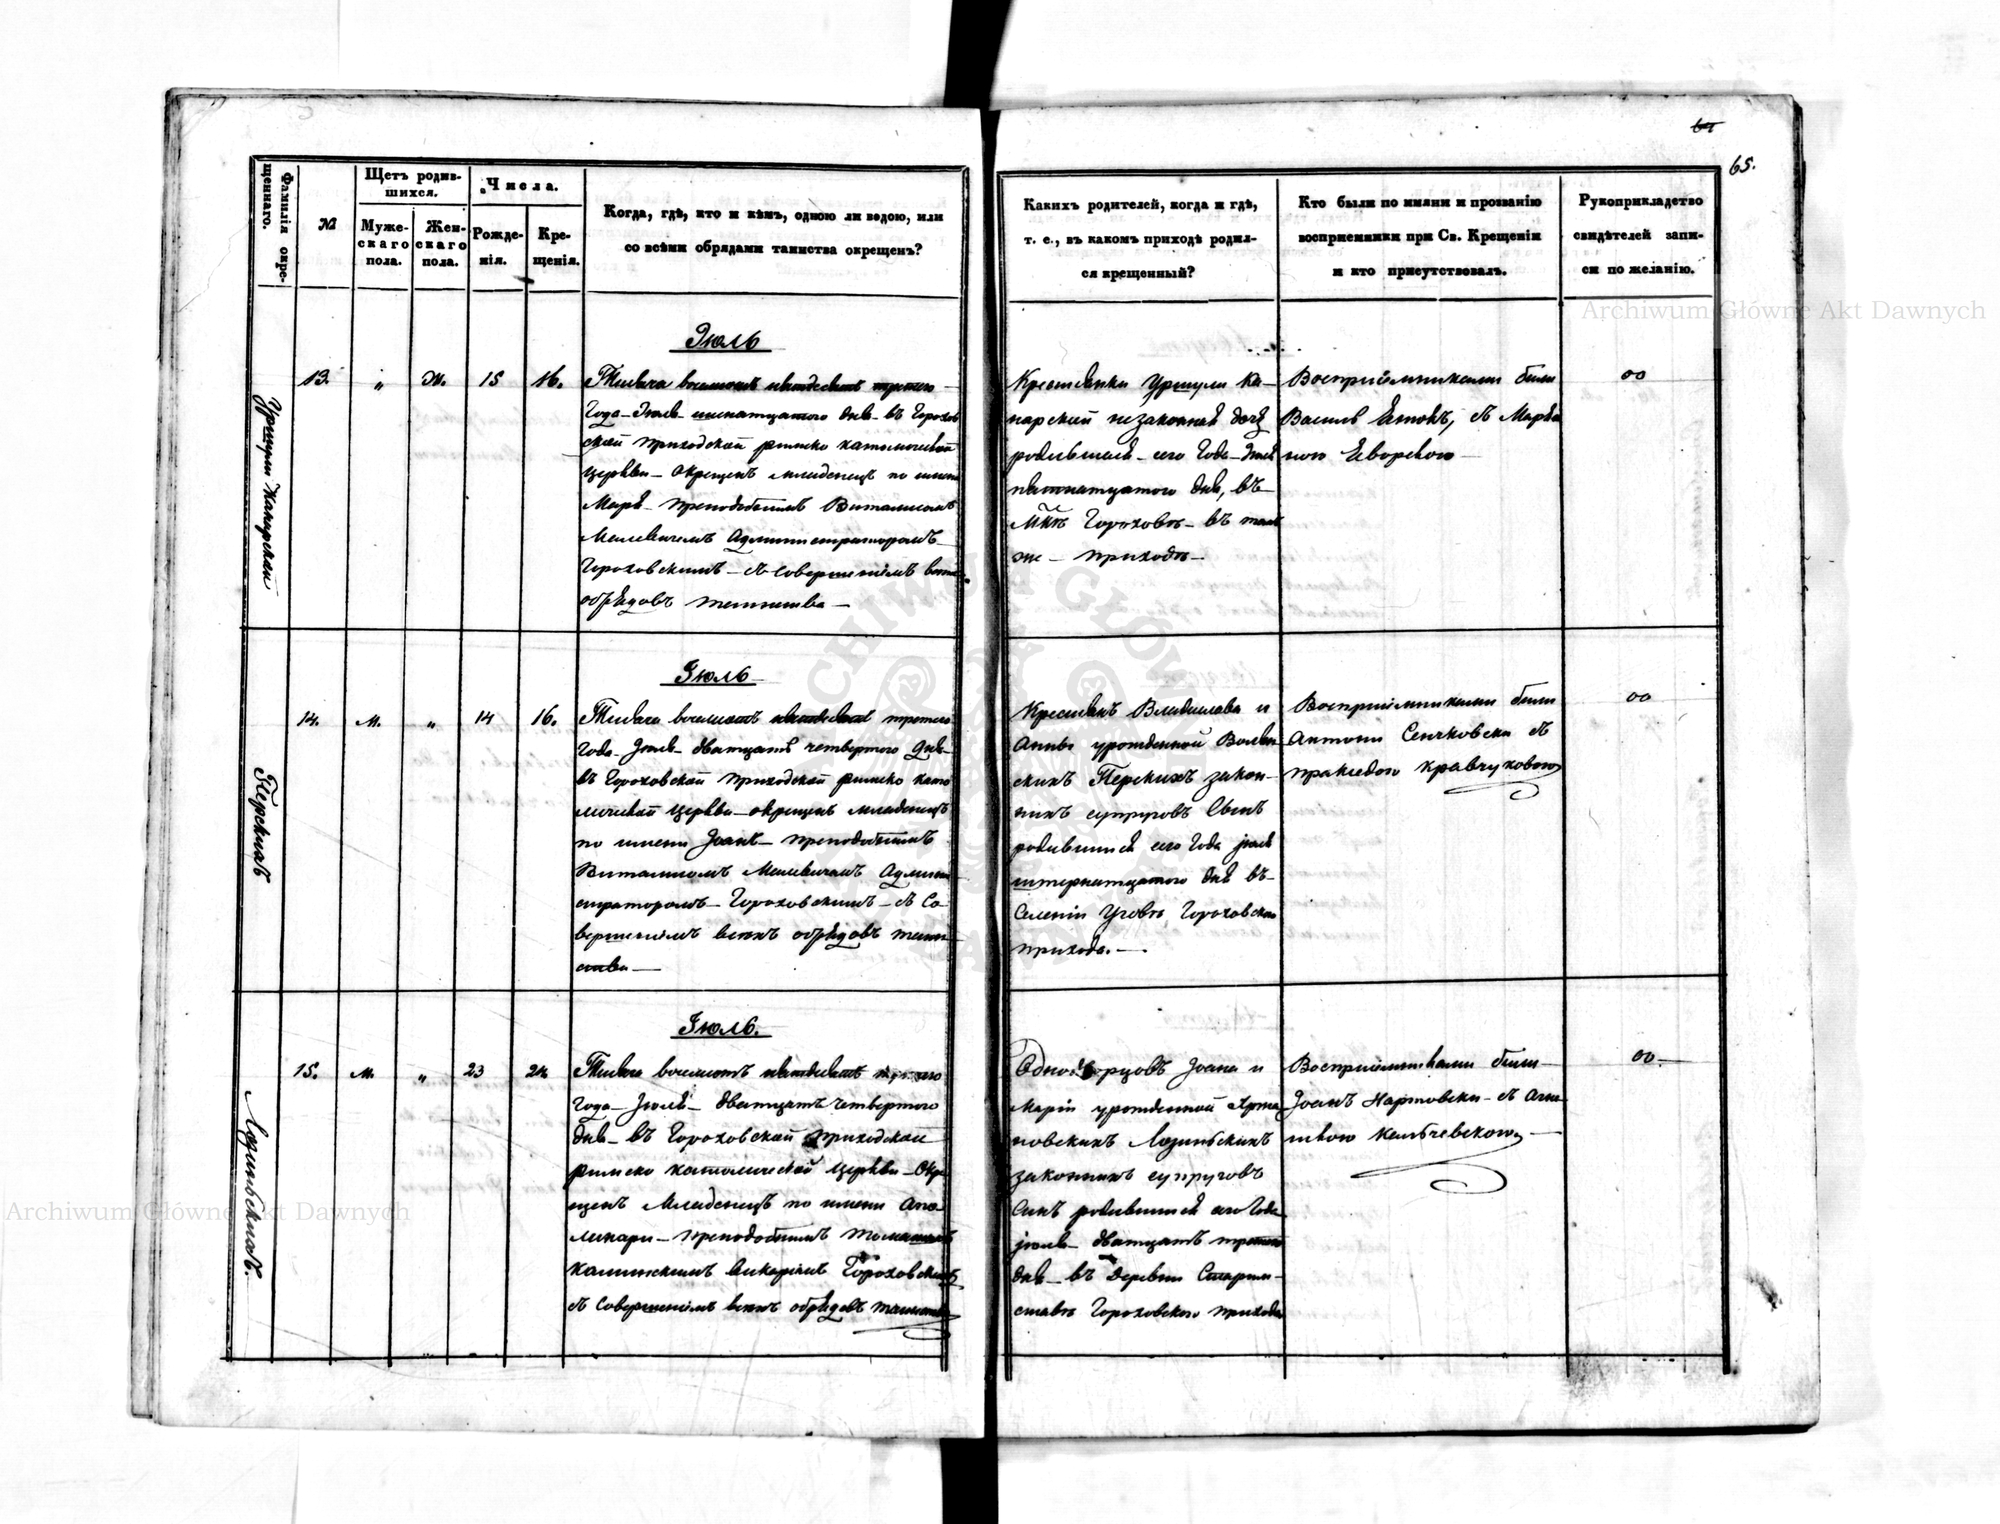 65.
Фамилія окре-
щеннаго.
№
Щетъ родив-
шихся.
Муже-
скаго
пола.
Жен-
скаго
пола.
Числа.
Рожде-
нія.
Кре-
щенія.
Когда, гдѣ, кто и кѣмъ, одною ли водою, или
со всѣми обрядами таинства окрещенъ?
Какихъ родителей, когда и гдѣ,
т. е., въ какомъ приходѣ родил-
ся крещенный?
Кто были по имяни и прозванію
восприемники при Св. Крещеніи
и кто присутствовалъ.
Рукоприкладство
свидѣтелей запи-
си по желанію.
Іюль
13.
„
Ж.
15
16.
Тысяча восемьсотъ пятдесятъ третого
Года Іюля шестнатцатого дня въ Горохов
ской приходской римско католической
церкви окрещенъ младенецъ по имени
преподобнымъ Виталисомъ
Администраторомъ
Гороховскимъ съ совершеніемъ всехъ
обрядовъ таинства
Крестянки Уршули Ка-
нарской незаконная дочь
родившаяся сего Года Іюля
пятнатцатого дня, въ
Мкѣ Гороховѣ въ томъ
же приходѣ
Восприемниками были
Василь съ Марья
ною Яворскою
00
Іюль
14.
м.
„
14
16.
Тысяча восемьсотъ пятдесятъ третого
Года Іюля дватцать четвертого дня
въ Гороховской приходской римско като
лической церкви окрещенъ младенецъ
по имени Іоанъ преподобнымъ
Виталисомъ Админи
страторомъ Гороховскимъ съ Со
вершеніемъ всехъ обрядовъ таин
ства
Перскихъ
Крестянъ Владислава и
Анны урожденной
скихъ Перскихъ закон-
нихъ супруговъ Сынъ
родившийся сего Года іюля
дня въ
Селеніи Угове Гороховского
прихода.
Восприемниками были
Антони Сенчковски съ
пракседою кравчуковою
00
Іюль.
15.
м.
„
23
24
Тысяча восемьсотъ пятдесятъ третого
года Іюля дватцать четвертого
дня въ Гороховской приходской
римско католической церкви Окре
щенъ Младенецъ по имени Апо
линари преподобнымъ
викаріемъ Гороховскимъ
съ Совершеніемъ всехъ обрядовъ таинства
Лозинскихъ.
Однодворцовъ Іоана и
Маріи урожденной
новскихъ Лозинскихъ
законнихъ супруговъ
Синъ родившийся сего Года
іюля дватцать третого
дня въ деревни
ставѣ Гороховского прихода
Восприемниками были
Іоанъ съ
00
Archiwum Główne Akt Dawnych
Archiwum Główne Akt Dawnych